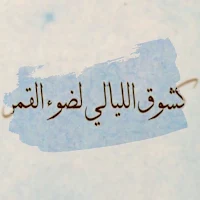 كشوق الليالي لضوء القمر